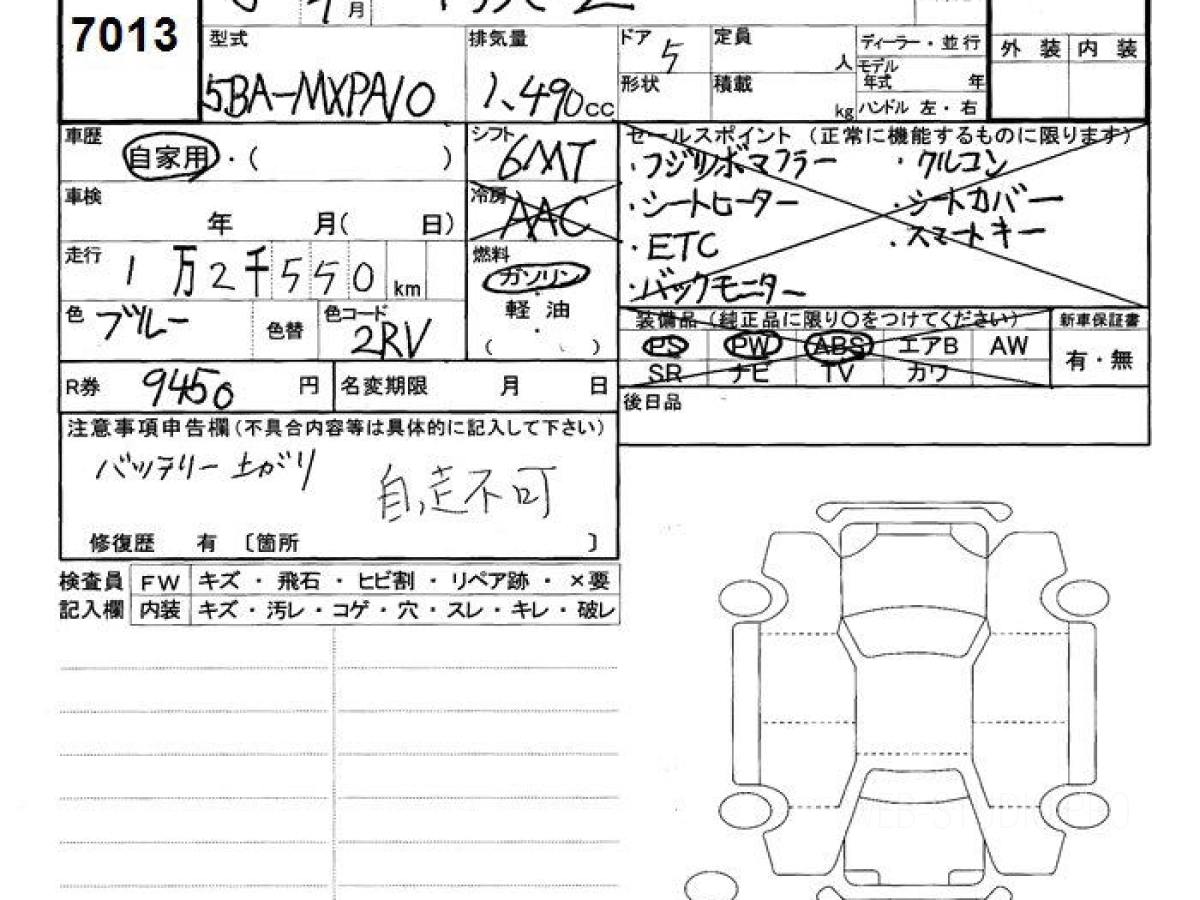 7013
月
型式 5BA-MXPA10
排気量 1,490cc
ドア 5
形状
定員 人
積載 kg
ディーラー・並行
モデル年式 年
ハンドル 左・右
外装 内装
車歴 自家用・( )
シフト 6MT
車検 年 月( 日)
冷房 AAC
走行 1万2千550km
燃料 ガソリン
軽油
・
( )
色 ブルー 色替 色コード 2RV
R券 9450円 名変期限 月 日
セールスポイント (正常に機能するものに限ります)
・フジツボマフラー ・クルコン
・シートヒーター ・シートカバー
・ETC ・スマートキー
・バックモニター
装備品 (純正品に限り○をつけてください) 新車保証書
PS PW ABS エアB AW 有・無
SR ナビ TV カワ
後日品
注意事項申告欄(不具合内容等は具体的に記入して下さい)
バッテリー上がり 自走不可
修復歴 有 〔箇所 〕
検査員 FW キズ・飛石・ヒビ割・リペア跡・×要
記入欄 内装 キズ・汚レ・コゲ・穴・スレ・キレ・破レ